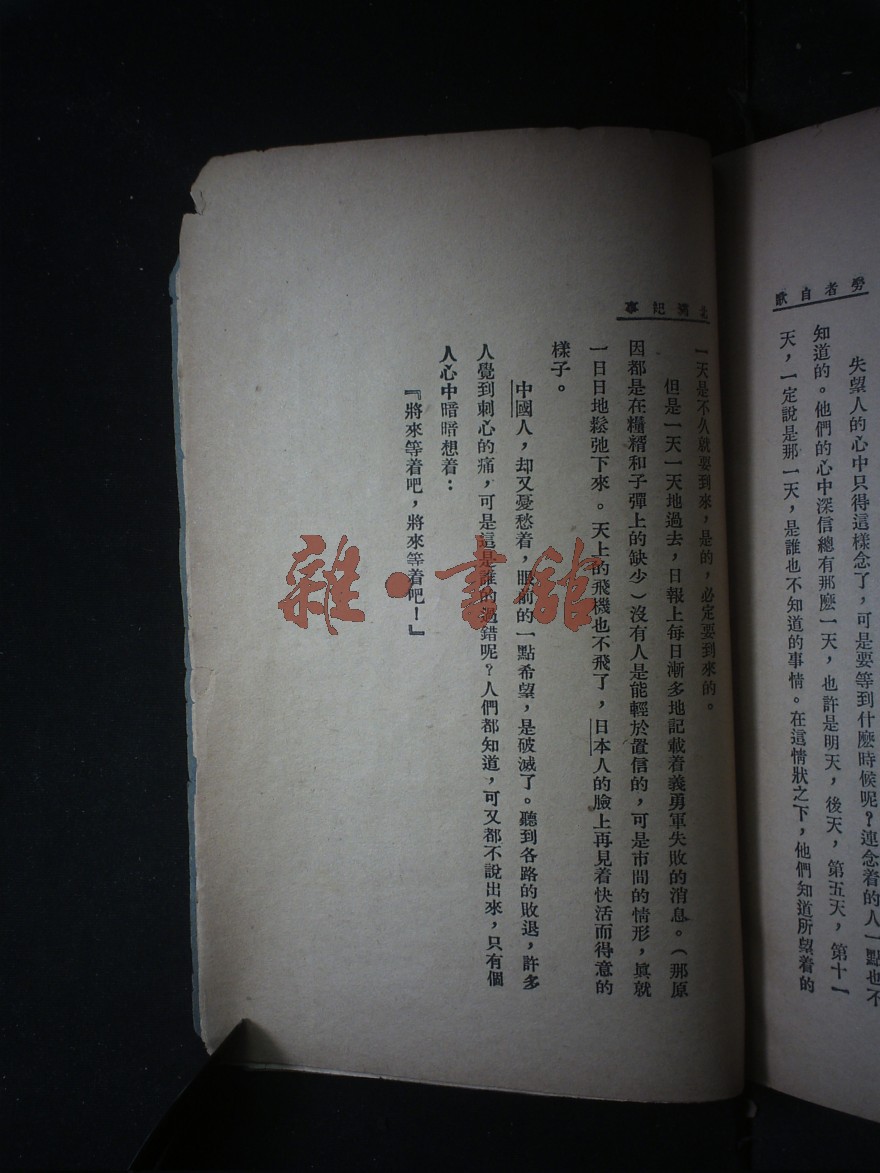 勞者自歌
失望人的心中只得這樣念了，可是要等到什麽時候呢？連念着的人一點也不
知道的。他們的心中深信總有那麽一天，也許是明天，後天，第五天，第十一
天，一定說是那一天，是誰也不知道的事情。在這情狀之下，他們知道所望着的
滿記事
一天是不久就要到來，是的，必定要到來的。
但是一天一天地過去，日報上每日漸多地記載着義勇軍失敗的消息。（那原
因都是在糧糈和子彈上的缺少）沒有人是能輕於置信的，可是市間的情形，眞就
一日日地鬆弛下來。天上的飛機也不飛了，日本人的臉上再見着快活而得意的
樣子。
中國人，却又憂愁着，眼前的一點希望，是破滅了。聽到各路的敗退，許多
人覺到刺心的痛，可是這是誰的過錯呢？人們都知道，可又都不說出來，只有個
人心中暗暗想着：
『將來等着吧，將來等着吧！』
雜·書館